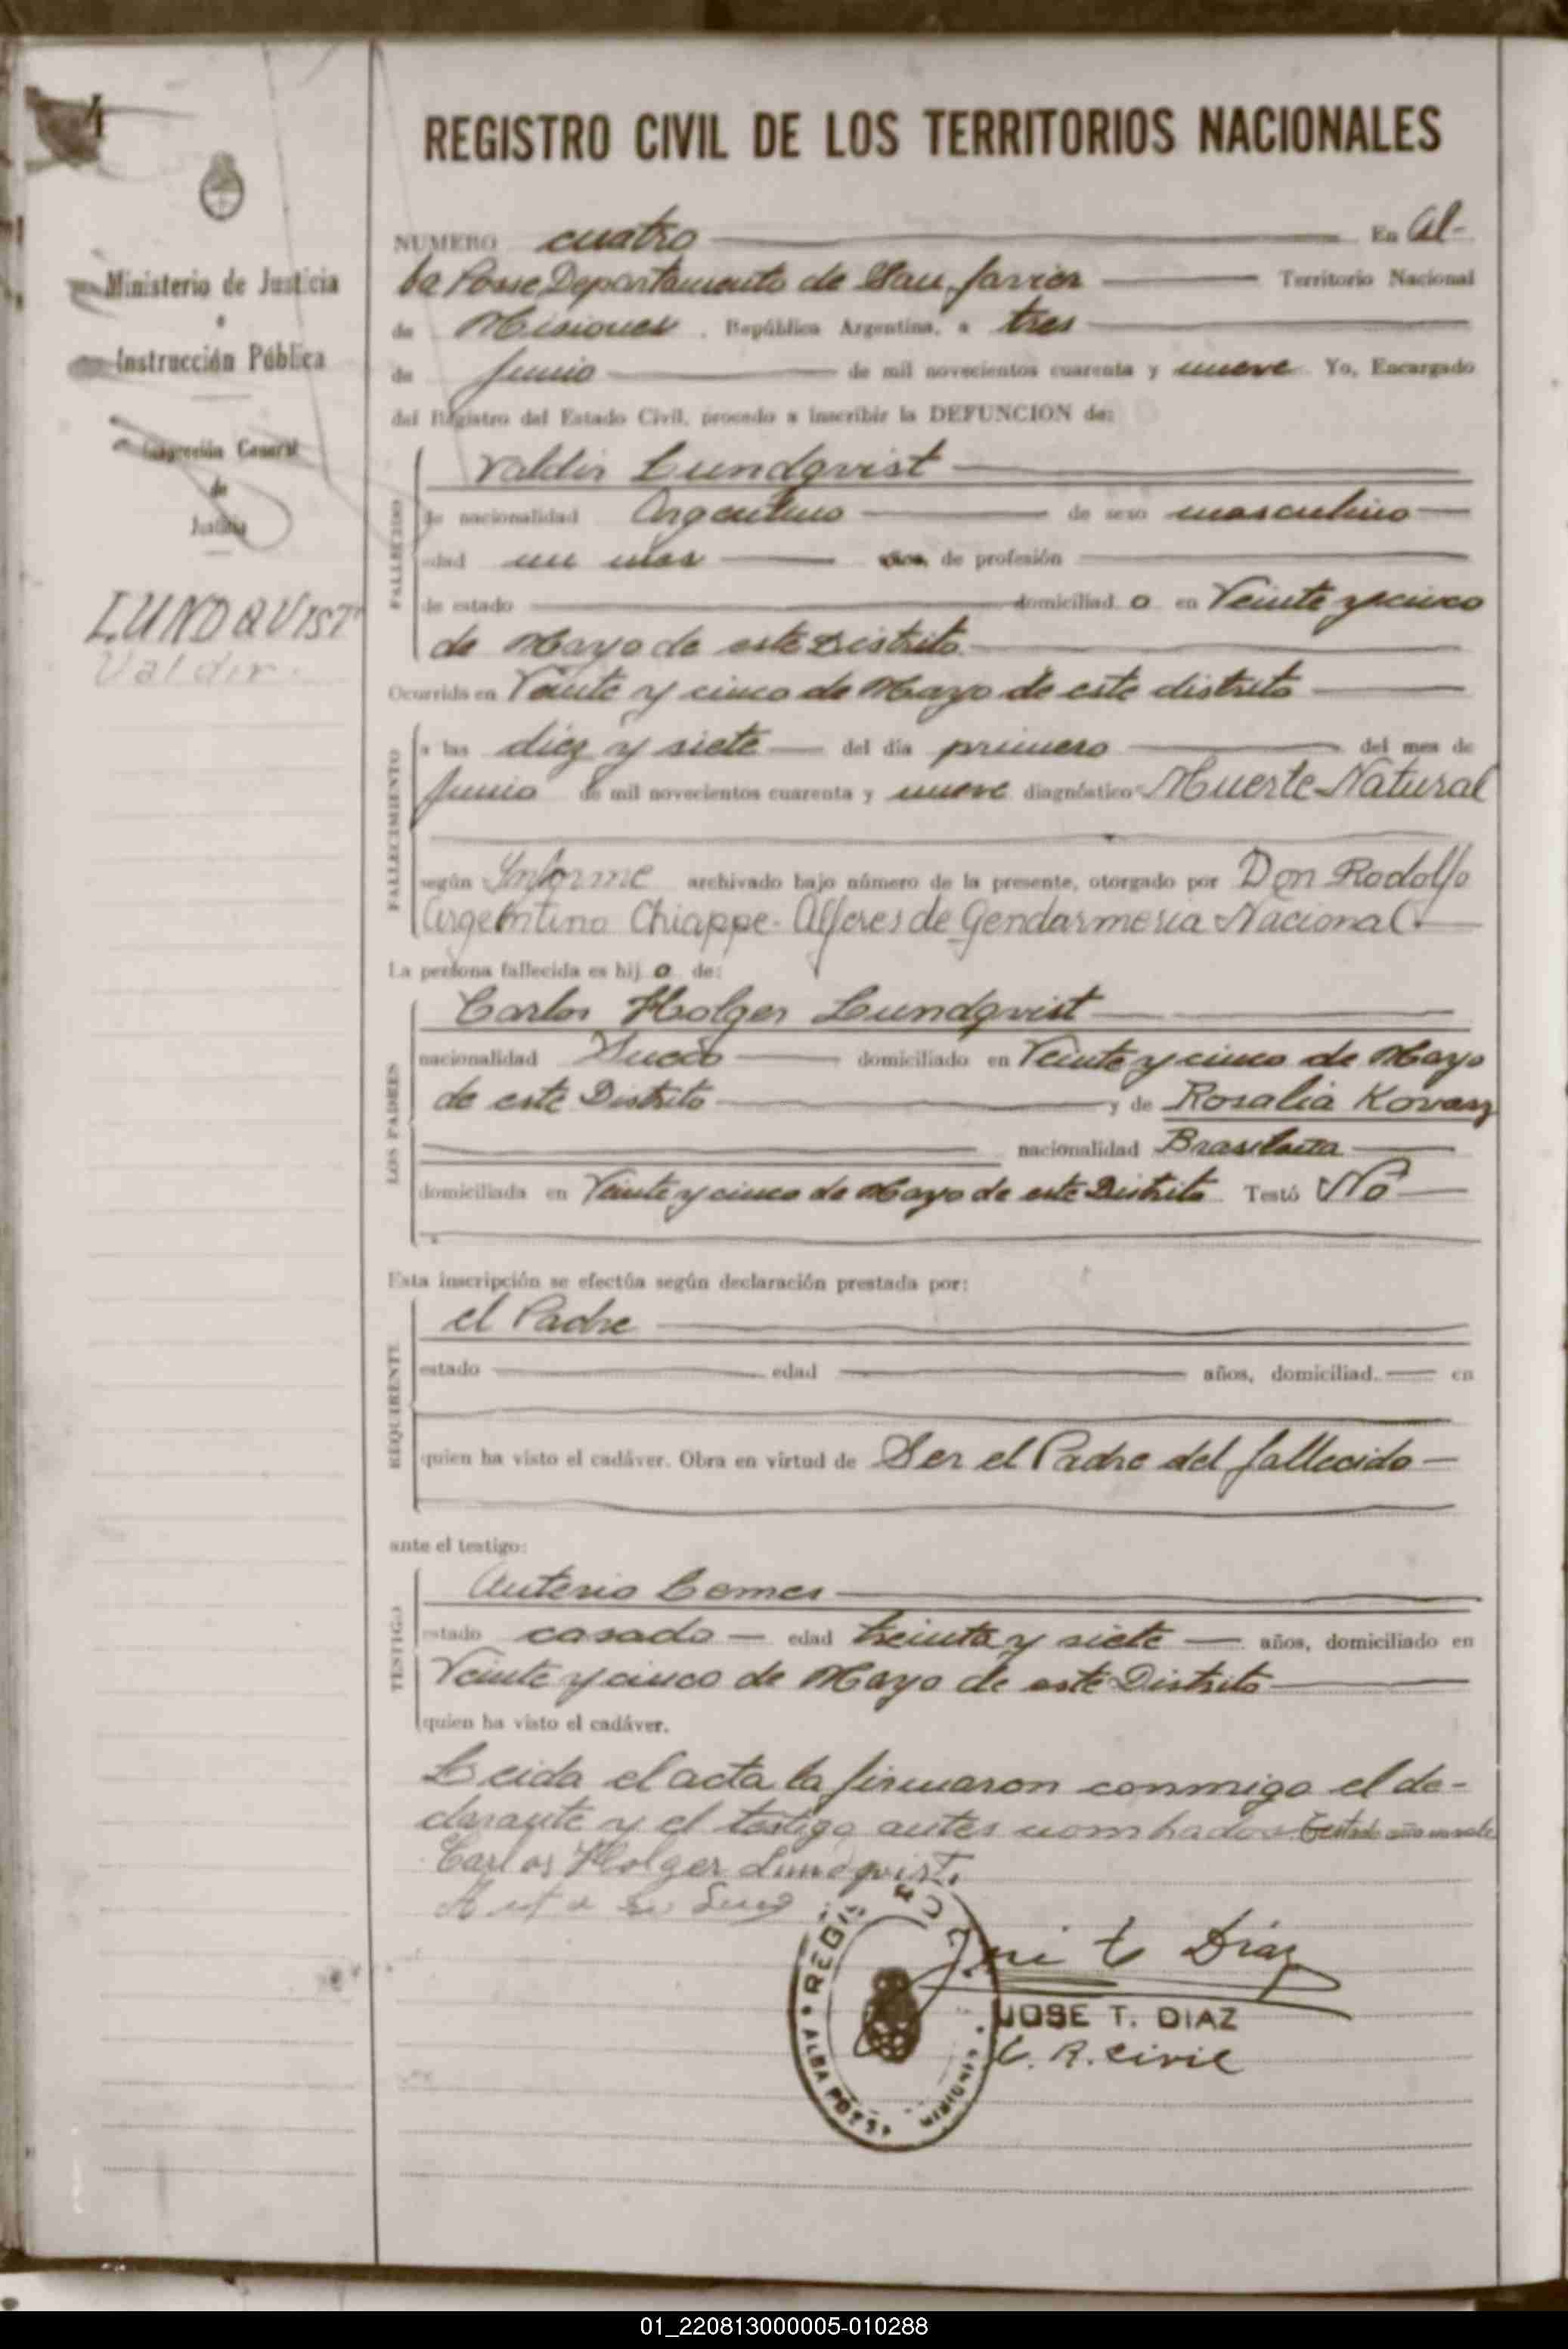 4
Ministerio de Justicia
e
Instrucción Pública
Inspección General
de
Justicia
LUNDQVIST
Valdir.
REGISTRO CIVIL DE LOS TERRITORIOS NACIONALES
NUMERO cuatro En Al-
ba Posse Departamento de San Javier Territorio Nacional
de Misiones, República Argentina, a tres
de Junio de mil novecientos cuarenta y nueve Yo, Encargado
del Registro del Estado Civil, procedo a inscribir la DEFUNCION de:
FALLECIDO
Valdir Lundqvist
de nacionalidad Argentino de sexo masculino
edad un mes años, de profesión
de estado domiciliad o en Veinte y cinco
de Mayo de este Distrito
Ocurrida en Veinte y cinco de Mayo de este distrito
FALLECIMIENTO
a las diez y siete del día primero del mes de
Junio de mil novecientos cuarenta y nueve diagnóstico Muerte Natural
según Informe archivado bajo número de la presente, otorgado por Don Rodolfo
Argentino Chiappe - Alferes de Gendarmeria Nacional
La persona fallecida es hij o de:
LOS PADRES
Carlos Holger Lundqvist
nacionalidad Sueco domiciliado en Veinte y cinco de Mayo
de este Distrito y de Rosalia Kovaz
nacionalidad Brasileña
domiciliada en Veinte y cinco de Mayo de este Distrito Testó No
Esta inscripción se efectúa según declaración prestada por:
REQUIRENTE
el Padre
estado edad años, domiciliad. en
quien ha visto el cadáver. Obra en virtud de Ser el Padre del fallecido
ante el testigo:
TESTIGO
Antenio Lemes
estado casado edad treinta y siete años, domiciliado en
Veinte y cinco de Mayo de este Distrito
quien ha visto el cadáver.
Leida el acta la firmaron conmigo el de-
clarante y el testigo antes nombrados Testado año no vale
Carlos Holger Lundqvist.
José T Díaz
JOSE T. DIAZ
E. R. Civil
REGIS
ALBA POSSE
MISIONES
01_220813000005-010288